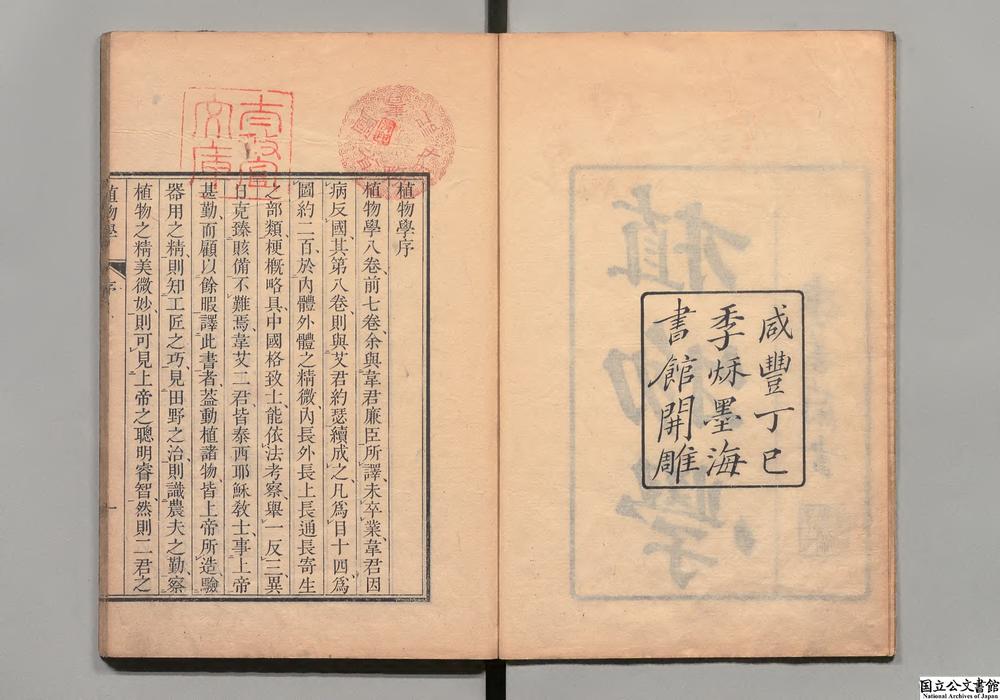 咸豐丁巳
季秌墨海
書館開雕
植物學序
植物學八卷、前七卷、余與韋君廉臣所譯、未卒業、韋君因
病反國、其第八卷、則與艾君約瑟續成之、凡爲目十四、爲
圖約二百、於內體外體之精微、內長外長上長通長寄生
之部類、梗槪略具、中國格致士、能依法考察、舉一反三、異
日克臻賅備不難焉、韋艾二君、皆泰西耶穌教士、事上帝
甚勤、而顧以餘暇譯此書者、葢動植諸物、皆上帝所造、驗
器用之精、則知工匠之巧、見田野之治、則識農夫之勤、察
植物之精美微妙、則可見上帝之聰明睿智、然則二君之
植物學
序
一
國立公文書館
National Archives of Japan